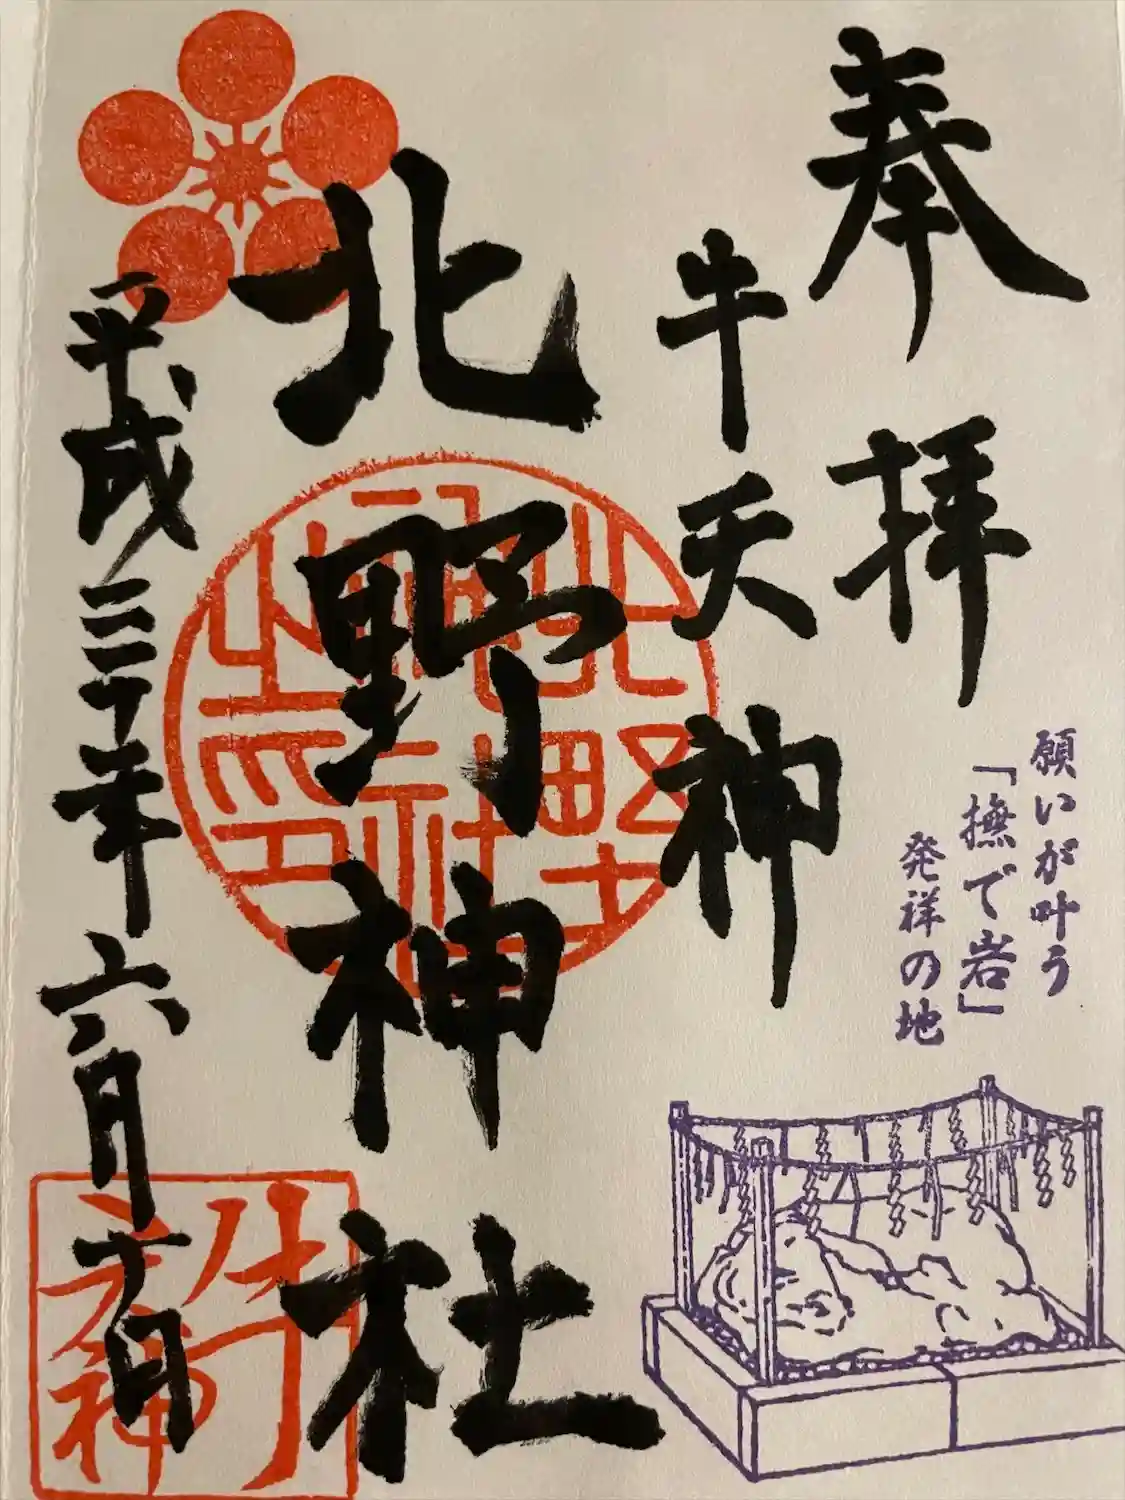 奉拝
願いが叶う
「撫で岩」
発祥の地
牛天神
北野神社
平成三十年六月十日
牛天神